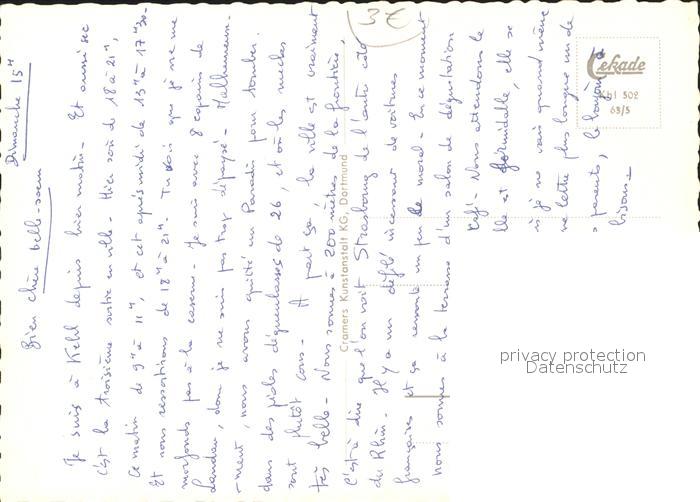 Dimanche 15H
Bien chère belle-soeur
Je suis à Kehl depuis hier matin - Et aussi sec
c'est la troisième sortie en ville - Hier soir de 18H à 21H,
Ce matin de 9H à 11H, et cet après midi de 13H à 17H30 -
Et nous ressortirons de 18H à 21H. Tu vois que je ne me
morfonds pas à la caserne - Je suis avec 8 copains de
Landau, donc je ne suis pas trop dépaysé - Malheureuse-
-ment, nous avons quitté un Paradis pour tomber
dans des pioles dégueulasses de 26, et où les mecs
sont plutôt cons - A part ça, la ville est vraiment
très belle - Nous sommes à 200 mètres de la frontière,
C'est à dire que l'on voit Strasbourg de l'autre côté
du Rhin - Il y a un défilé incessant de voitures
françaises et ça remonte un peu le moral - En ce moment
nous sommes à la terrasse d'un salon de dégustation
café - Nous attendons le
lle est formidable, elle se
is je ne vais quand même
ne lettre plus longue un de
s parents, le bonjour à
bisous -
3€
Cekade
Kbl 502
63/5
Cramers Kunstanstalt KG, Dortmund
privacy protection
Datenschutz